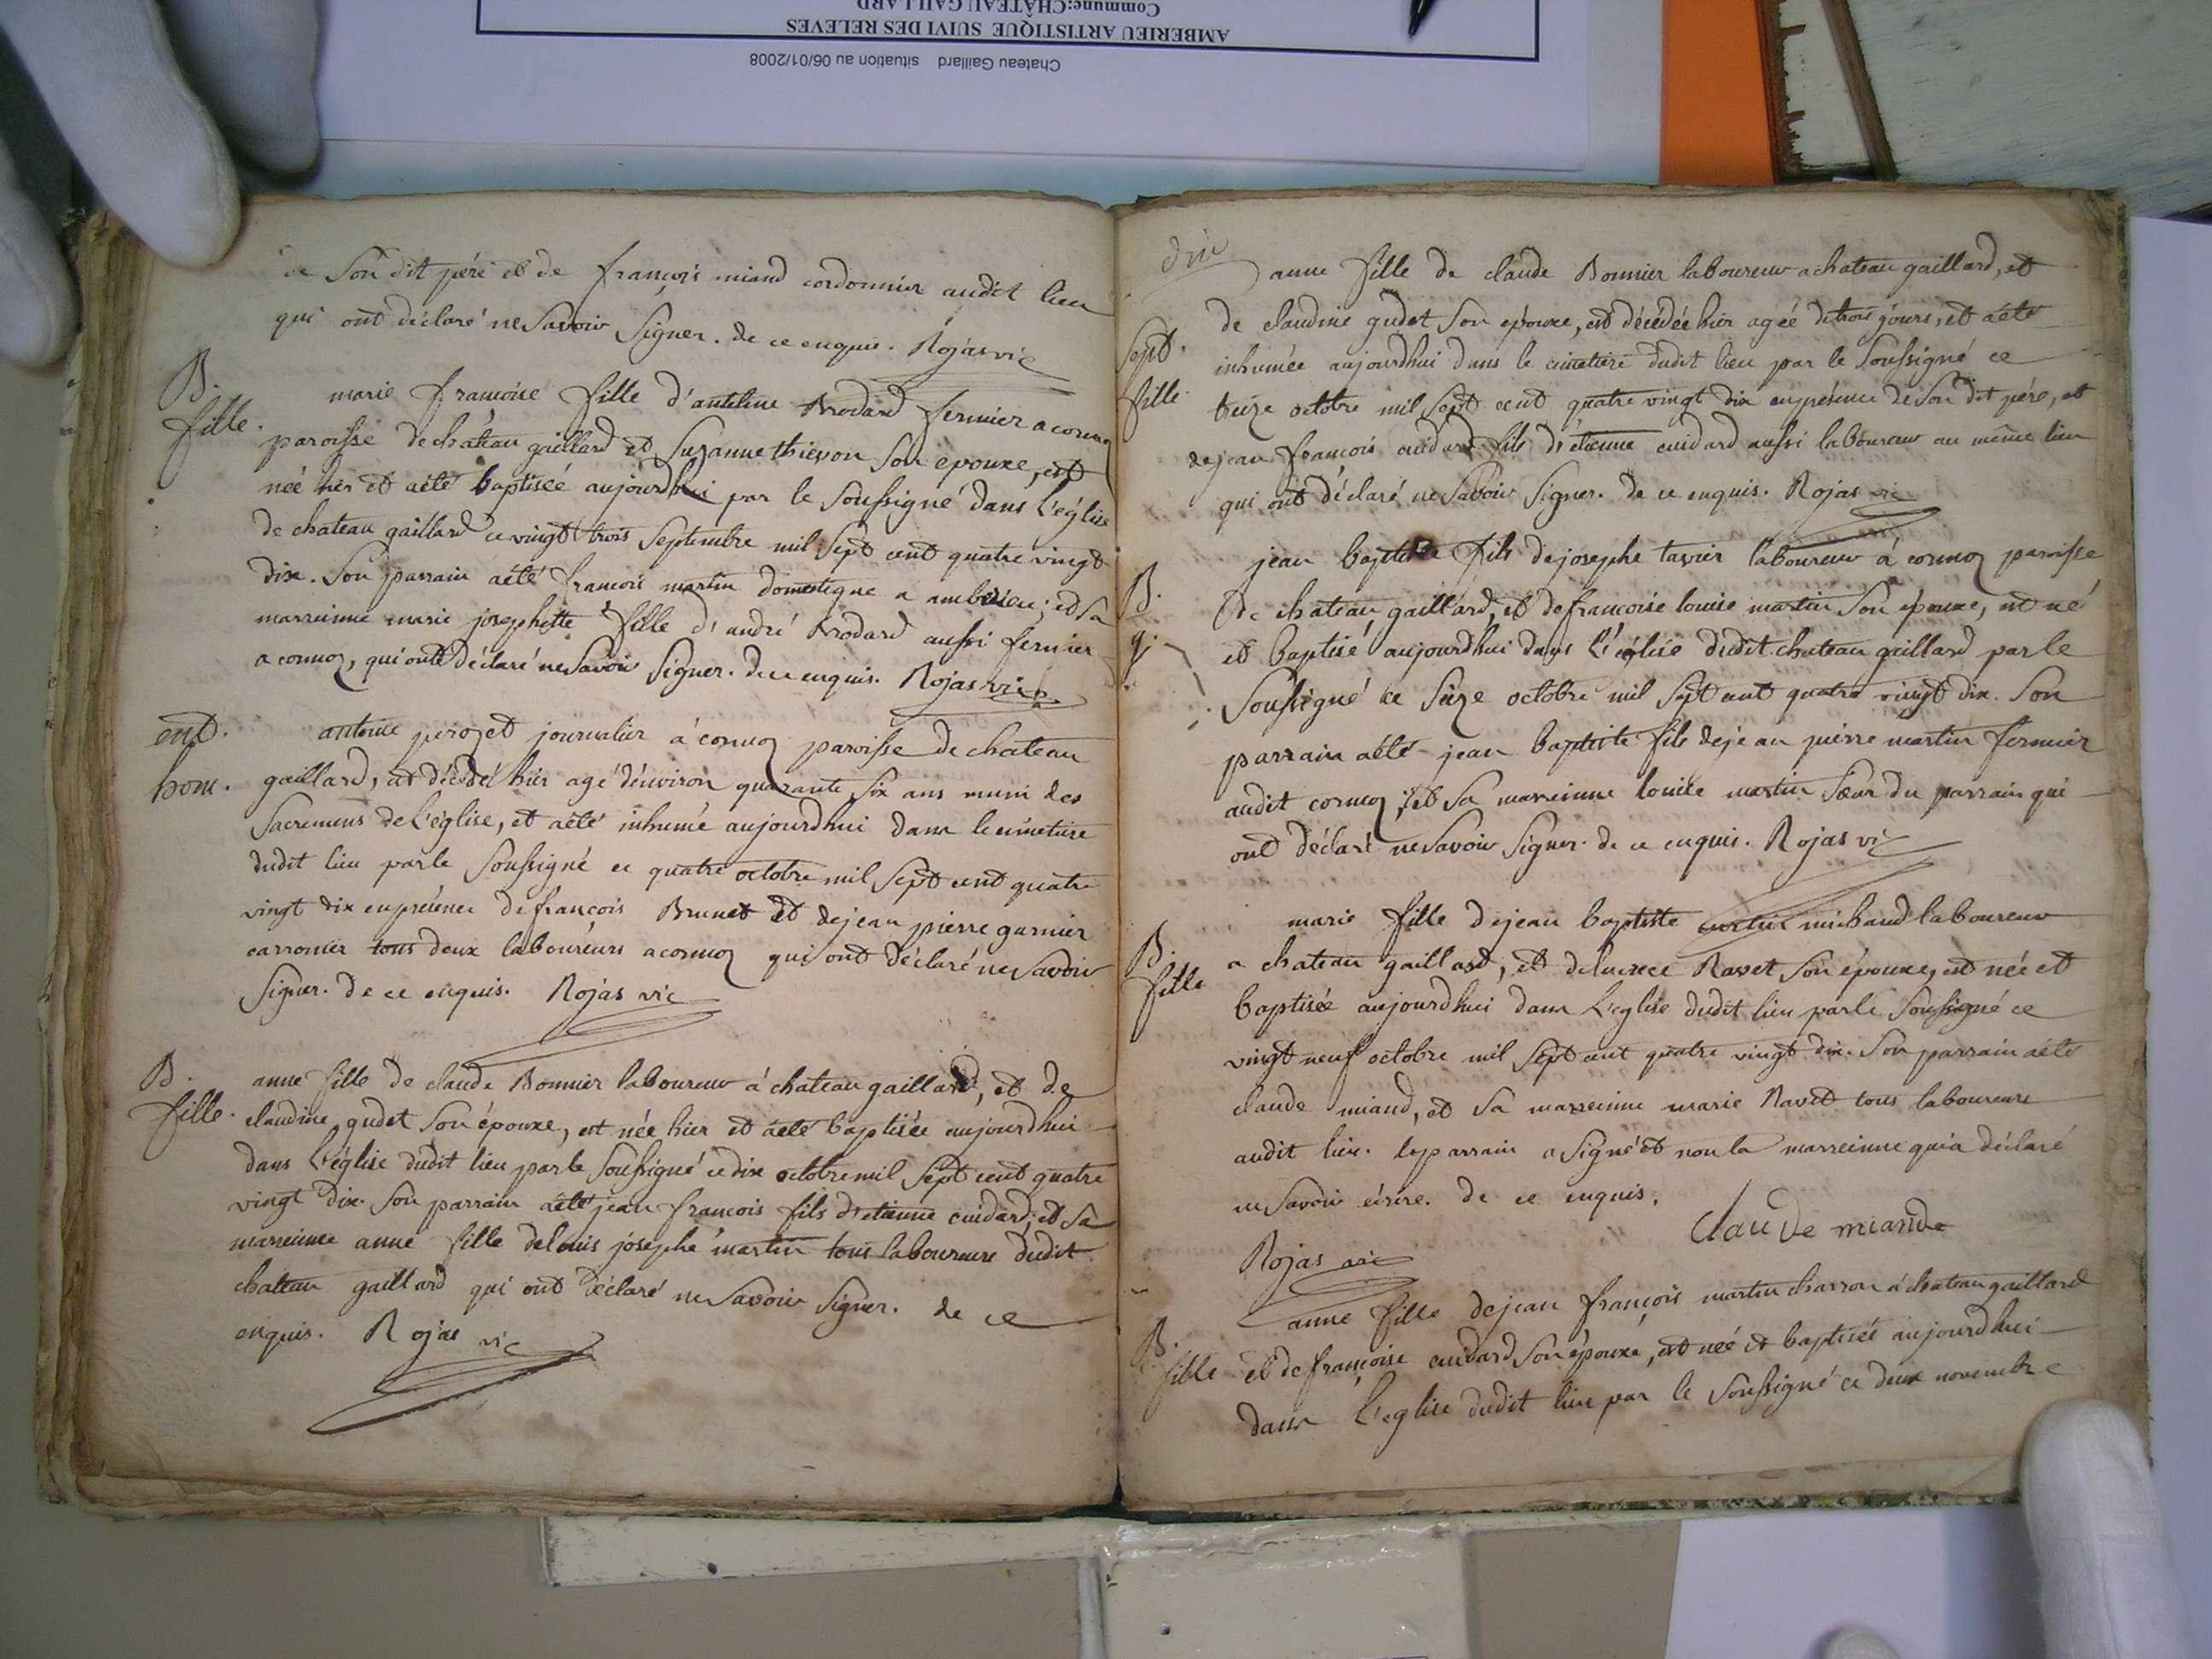 Commune:CHÂTEAU GAILLARD
AMBERIEU ARTISTIQUE SUIVI DES RELEVES
Chateau Gaillard situation au 06/01/2008
de Son dit pére et de françois miand cordonnier audit lieu
qui ont déclaré ne Savoir Signer. de ce enquis. Rojas vic
B.
fille.
marie francoise fille d'antelme Brodard fermier a cormoz
paroisse de chateau gaillard et Suzanne thievon Son epouxe, est
née hier et aété baptiseé aujourdhui par le Soussigné dans L'église
de chateau gaillard ce vingt trois Septembre mil Sept cent quatre vingt
dix. Son parrain aété francois martin domestique a ambérieu; et Sa
marreinne marie josephette fille d'andré Brodard aussi fermier
a cormoz, qui ont déclaré ne Savoir Signer. de ce enquis. Rojas vic
ent.
hom.
antoine perozet journalier á cormoz paroisse de chateau
gaillard, est décédé hier agé d'environ quarante Six ans muni des
Sacremens de L'église, et aété inhumé aujourdhui dans le cimetiere
dudit lieu par le Soussigné ce quatre octobre mil Sept cent quatre
vingt dix en présence de francois Brunet et de jean pierre garnier
carronier tous deux laboureurs a cormoz qui ont déclaré ne Savoir
Signer. de ce enquis. Rojas vic
B.
fille.
anne fille de claude Bonnier laboureur á chateau gaillard, et de
claudine gudet Son épouxe, est née hier et aété baptisée aujourdhui
dans L'église dudit lieu par le Soussigné ce dix octobre mil Sept cent quatre
vingt dix. Son parrain aété jean francois fils d'etienne cuidard; et Sa
marreinne anne fille de louis josephe martin tous laboureurs dudit
chateau gaillard qui ont déclaré ne Savoir Signer. de ce
enquis. Rojas vic
Sept.
fille
anne fille de claude Bonnier laboureur a chateau gaillard, et
de claudine gudet Son épouxe, est décédée hier agée de trois jours, et aété
inhumée aujourdhui dans le cimetiere dudit lieu par le Soussigné ce
treize octobre mil Sept cent quatre vingt dix en présence de Son dit pére, et
de jean francois cuidard fils d'etienne cuidard aussi laboureur au même lieu
qui ont déclaré ne Savoir Signer. de ce enquis. Rojas vic
B.
g.
jean baptiste fils de josephe tavier laboureur á cormoz paroisse
de chateau gaillard, et de francoise louise martin Son épouxe, est né
et baptisé aujourdhui dans L'église dudit chateau gaillard par le
Soussigné ce Seize octobre mil Sept cent quatre vingt dix. Son
parrain aété jean baptiste fils de jean pierre martin fermier
audit cormoz, et Sa marreinne louise martin Sœur du parrain qui
ont déclaré ne Savoir Signer. de ce enquis. Rojas vic
B.
fille
marie fille de jean baptiste michaud laboureur
a chateau gaillard, et de lucrece Ravet Son épouxe, est née et
baptisée aujourdhui dans L'eglise dudit lieu par le Soussigné ce
vingt neuf octobre mil Sept cent quatre vingt dix. Son parrain aété
claude miand, et Sa marreinne marie Ravet tous laboureurs
audit lieu. le parrain a Signé et non la marreinne qui a déclaré
ne Savoir écrire. de ce enquis.
Claude miand
Rojas vic
B.
fille
anne fille de jean françois martin charron á chateau gaillard
et de françoise cuidard Son épouxe, est née et baptisée aujourdhui
dans L'eglise dudit lieu par le Soussigné ce deux novembre